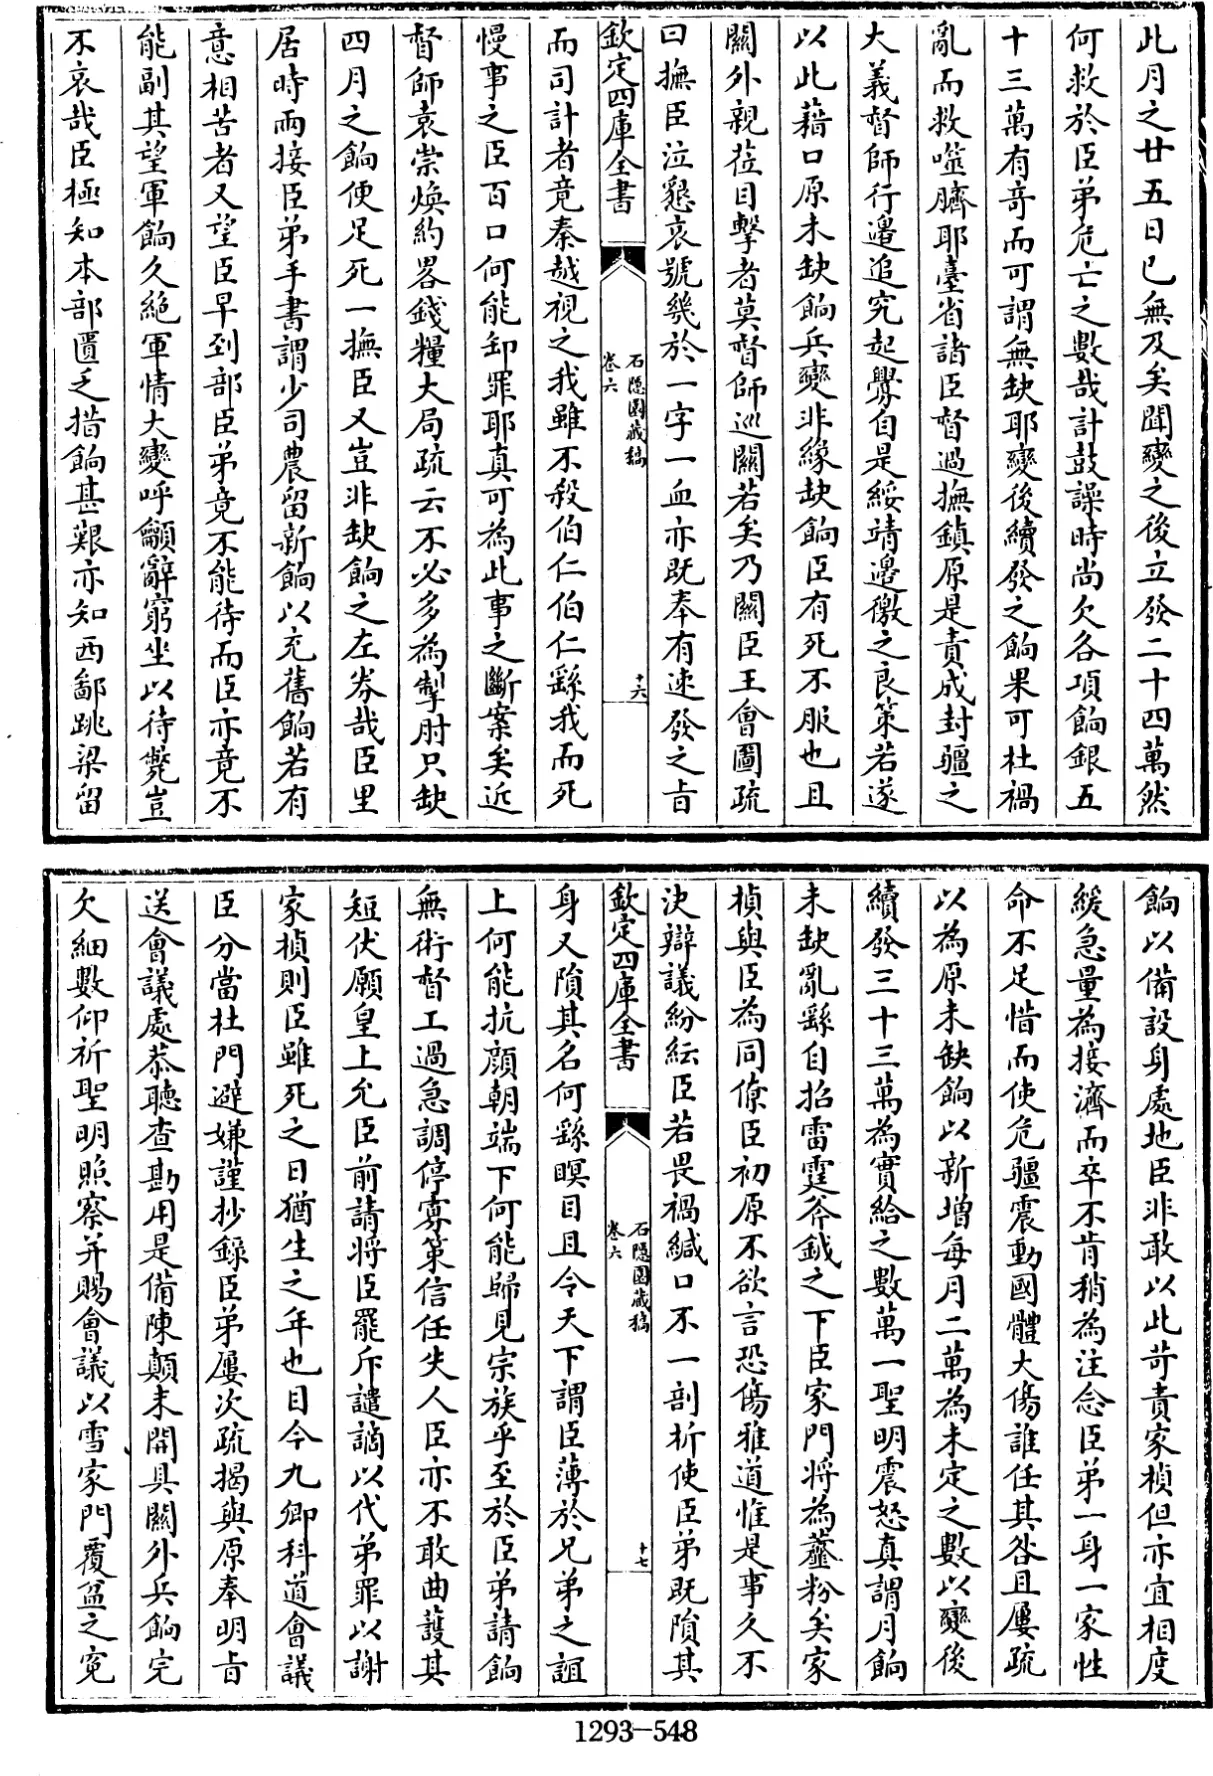 此月之廿五日已無及矣聞變之後立發二十四萬然
何救於臣弟危亡之數哉計鼓譟時尚欠各項餉銀五
十三萬有竒而可謂無缺耶變後續發之餉果可杜禍
亂而救噬臍耶臺省諸臣督過撫鎮原是責成封疆之
大義督師行邊追究起釁自是綏靖邊徼之良策若遂
以此藉口原未缺餉兵變非緣缺餉臣有死不服也且
關外親蒞目擊者莫督師巡關若矣乃關臣王會圖疏
曰撫臣泣懇哀號幾於一字一血亦既奉有速發之旨
欽定四庫全書
石隱園藏稿
卷六
十六
而司計者竟秦越視之我雖不殺伯仁伯仁繇我而死
慢事之臣百口何能卸罪耶真可為此事之斷案矣近
督師袁崇煥約畧錢糧大局疏云不必多為掣肘只缺
四月之餉便足死一撫臣又豈非缺餉之左劵哉臣里
居時兩接臣弟手書謂少司農留新餉以充舊餉若有
意相苦者又望臣早到部臣弟竟不能待而臣亦竟不
能副其望軍餉久絶軍情大變呼籲辭窮坐以待斃豈
不哀哉臣極知本部匱乏措餉甚艱亦知西鄙跳梁留
餉以備設身處地臣非敢以此苛責家楨但亦宜相度
緩急量為接濟而卒不肯稍為注念臣弟一身一家性
命不足惜而使危疆震動國體大傷誰任其咎且屢疏
以為原未缺餉以新增每月二萬為未定之數以變後
續發三十三萬為實給之數萬一聖明震怒真謂月餉
未缺亂繇自招雷霆斧鉞之下臣家門將為虀粉矣家
楨與臣為同僚臣初原不欲言恐傷雅道惟是事久不
決辯議紛紜臣若畏禍緘口不一剖析使臣弟既隕其
欽定四庫全書
石隱園藏稿
卷六
十七
身又隕其名何繇瞑目且令天下謂臣薄於兄弟之誼
上何能抗顔朝端下何能歸見宗族乎至於臣弟請餉
無術督工過急調停寡策信任失人臣亦不敢曲護其
短伏願皇上允臣前請將臣罷斥譴謫以代弟罪以謝
家楨則臣雖死之日猶生之年也目今九卿科道會議
臣分當杜門避嫌謹抄録臣弟屢次疏揭與原奉明旨
送會議處恭聽查勘用是備陳顛末開具關外兵餉完
欠細數仰祈聖明照察并賜會議以雪家門覆盆之寃
1293-548